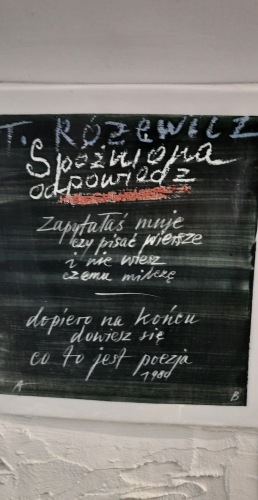 T. RÓŻEWICZ
Spóźniona
odpowiedź
Zapytałaś mnie
czy pisać wiersze
i nie wiesz
czemu milczę
dopiero na końcu
dowiesz się
co to jest poezja
1980
A B